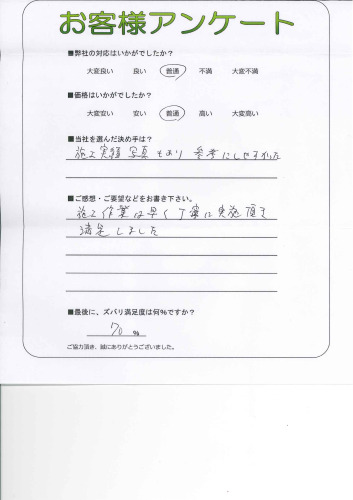 お客様アンケート
■弊社の対応はいかがでしたか？
大変良い 良い 普通 不満 大変不満
■価格はいかがでしたか？
大変安い 安い 普通 高い 大変高い
■当社を選んだ決め手は？
施工実績写真もあり 参考にしやすかった
■ご感想・ご要望などをお書き下さい。
施工作業は早く丁寧に実施頂き
満足しました
■最後に、ズバリ満足度は何%ですか？
70 %
ご協力頂き、誠にありがとうございました。